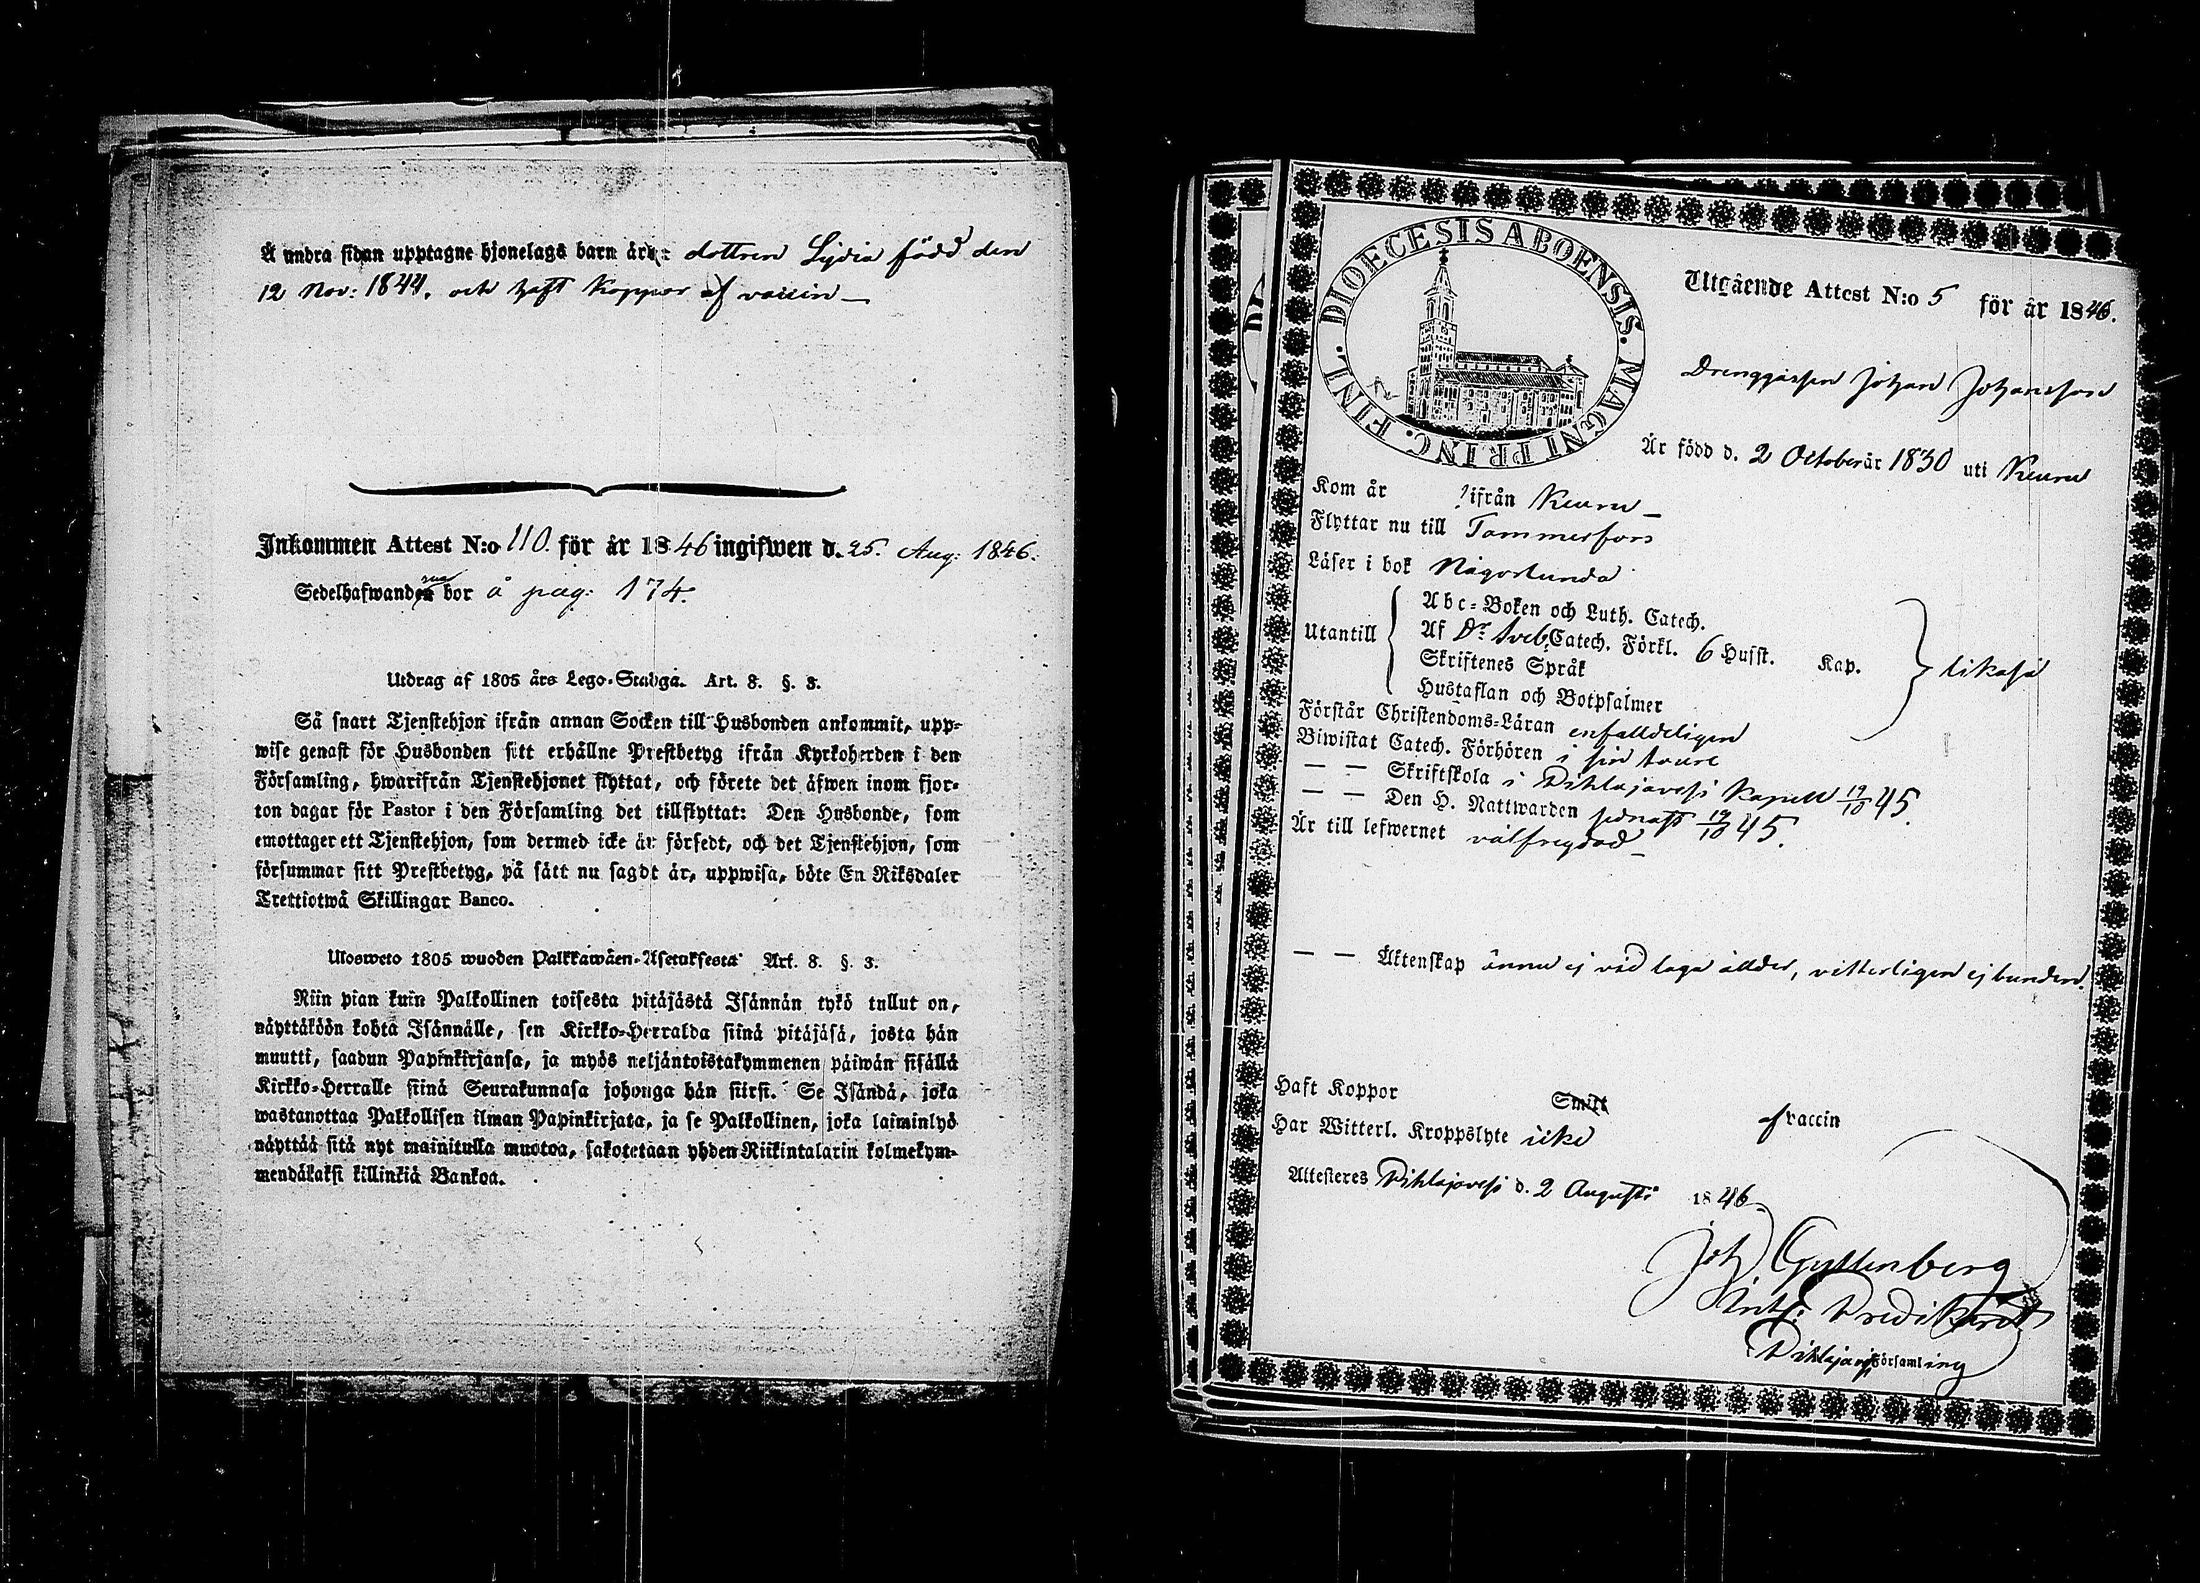 Å andra sidan upptagne hjonelags barn äro: dottren Lydia född den
12 Nov: 1844. och haft koppor af vaccin —
Inkommen Attest N:o 110. för år 1846 ingifwen d. 25. Aug: 1846.
Sedelhafwanden bor å pag: 174.
Utdrag af 1805 års Lego-Stadga. Art. 8. §. 3.
Så snart Tjenstehjon ifrån annan Socken till Husbonden ankommit, upp-
wise genast för Husbonden sitt erhållne Prestbetyg ifrån Kyrkoherden i den
Församling, hwarifrån Tjenstehjonet flyttat, och förete det äfwen inom fjor-
ton dagar för Pastor i den Församling det tillflyttat: Den Husbonde, som
emottager ett Tjenstehjon, som dermed icke är försedt, och det Tjenstehjon, som
försummar sitt Prestbetyg, på sätt nu sagdt är, uppwisa, böte En Riksdaler
Trettiotwå Skillingar Banco.
Ulosweto 1805 wuoden Palkkawäen-Asetuksesta Art. 8. §. 3.
Niin pian kuin Palkollinen toisesta pitäjästä Isännän tykö tullut on,
näyttäköön kohta Isännälle, sen Kirkko-Herralda siinä pitäjäsä, josta hän
muutti, saadun Papinkirjansa, ja myös neljäntoistakymmenen päiwän sisällä
Kirkko-Herralle siinä Seurakunnasa johonga hän siirsi. Se Isändä, joka
wastanottaa Palkollisen ilman Papinkirjata, ja se Palkollinen, joka laiminlyö
näyttää sitä nyt mainitulla muotoa, sakotetaan yhden Riikintalarin kolmekym-
mendäkaksi killinkiä Bankoa.
DIOECESIS ABOENSIS. MAGNI PRINC. FINL.
Utgående Attest N:o 5 för år 1846.
Drenggåssen Johan Johansson
Är född d. 2 October år 1830 uti Keuru
Kom år ifrån Keuru —
Flyttar nu till Tammerfors
Läser i bok Någorlunda
Utantill
Abc-Boken och Luth. Catech.
Af Dr Sveb. Catech. Förkl. 6 Husst. Kap.
Skriftenes Språk
Hustaflan och Botpsalmer
likaså
Förstår Christendoms-Läran enfalldeligen
Biwistat Catech. Förhören i sin
— — Skriftskola i Pihlajavesi Kapell 19/10 45.
— — Den H. Nattwarden senast 19/10 45.
Är till lefwernet välfregdad —
— — Äktenskap ännu ej vid laga ållder, vitterligen ej bunden.
Haft Koppor Smitt af vaccin
Har Witterl. Kroppslyte icke
Attesteres Pihlajavesi d. 2 Augusti 1846 —
Joh Gyllenberg
Pihlajavesi Församling